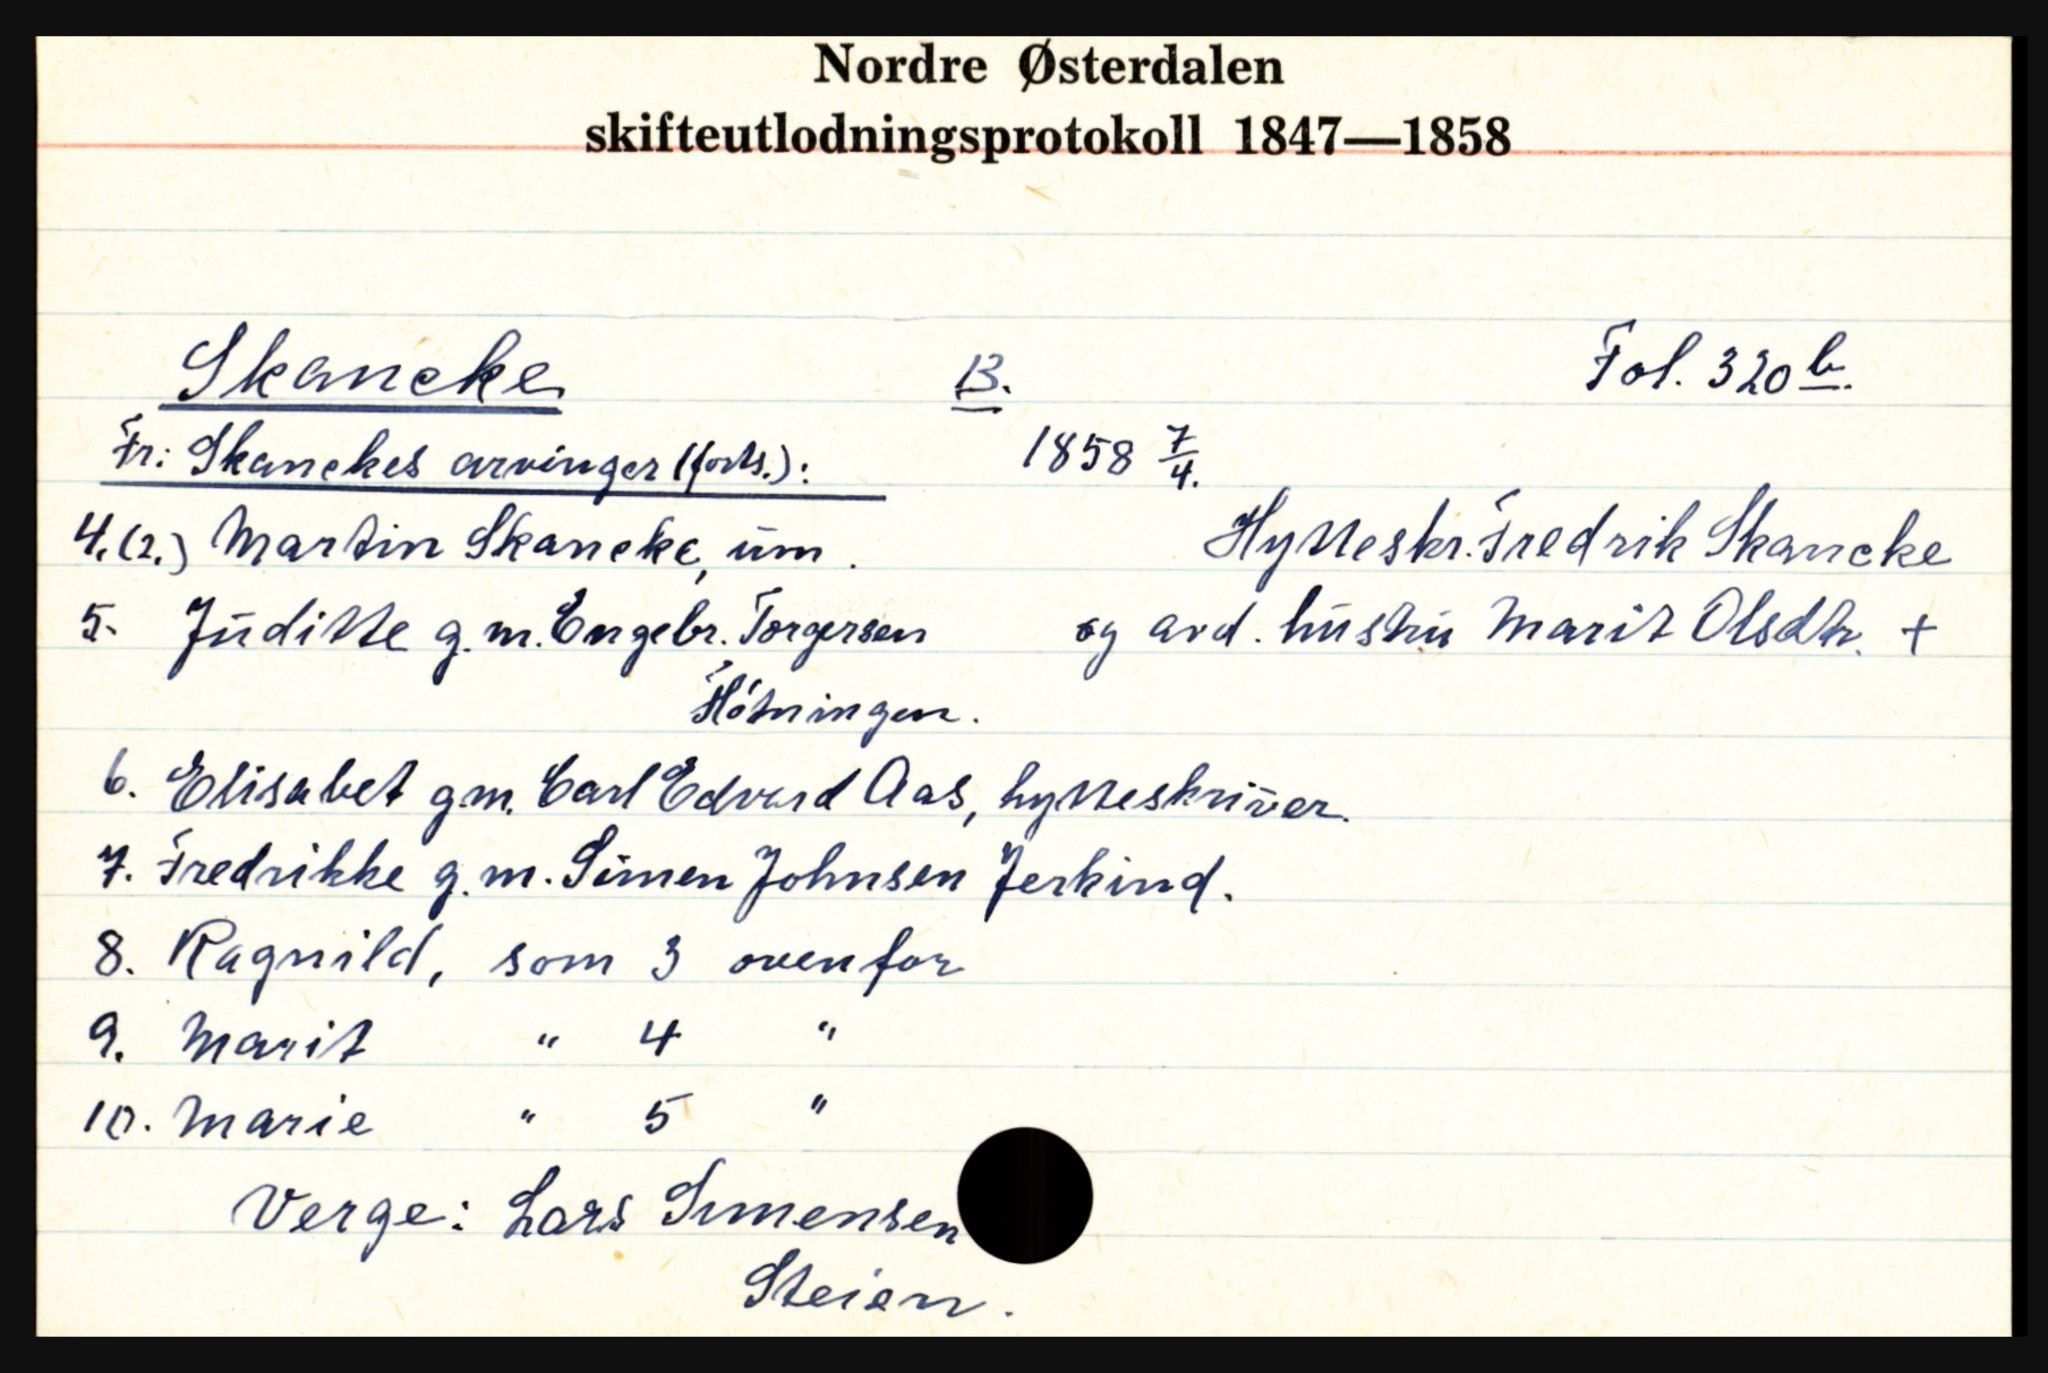 Nordre Østerdalen
skifteutlodningsprotokoll 1847—1858
Skancke B. Fol. 320 b.
Fr: Skanckes arvinger (forts.): 1858 7/4.
4.(2.) Martin Skancke, um. Hytteskr. Fredrik Skancke
5. Juditte g.m. Engebr. Torgersen og avd. hustru Marit Olsdtr. +
Fløtningen.
6. Elisabet g.m. Carl Edvard Aas, hytteskriver.
7. Fredrikke g.m. Simen Johnsen Jerkind.
8. Ragnild, som 3 ovenfor
9. Marit " 4 "
10. Marie " 5 "
Verge: Lars Simensen
Steien.